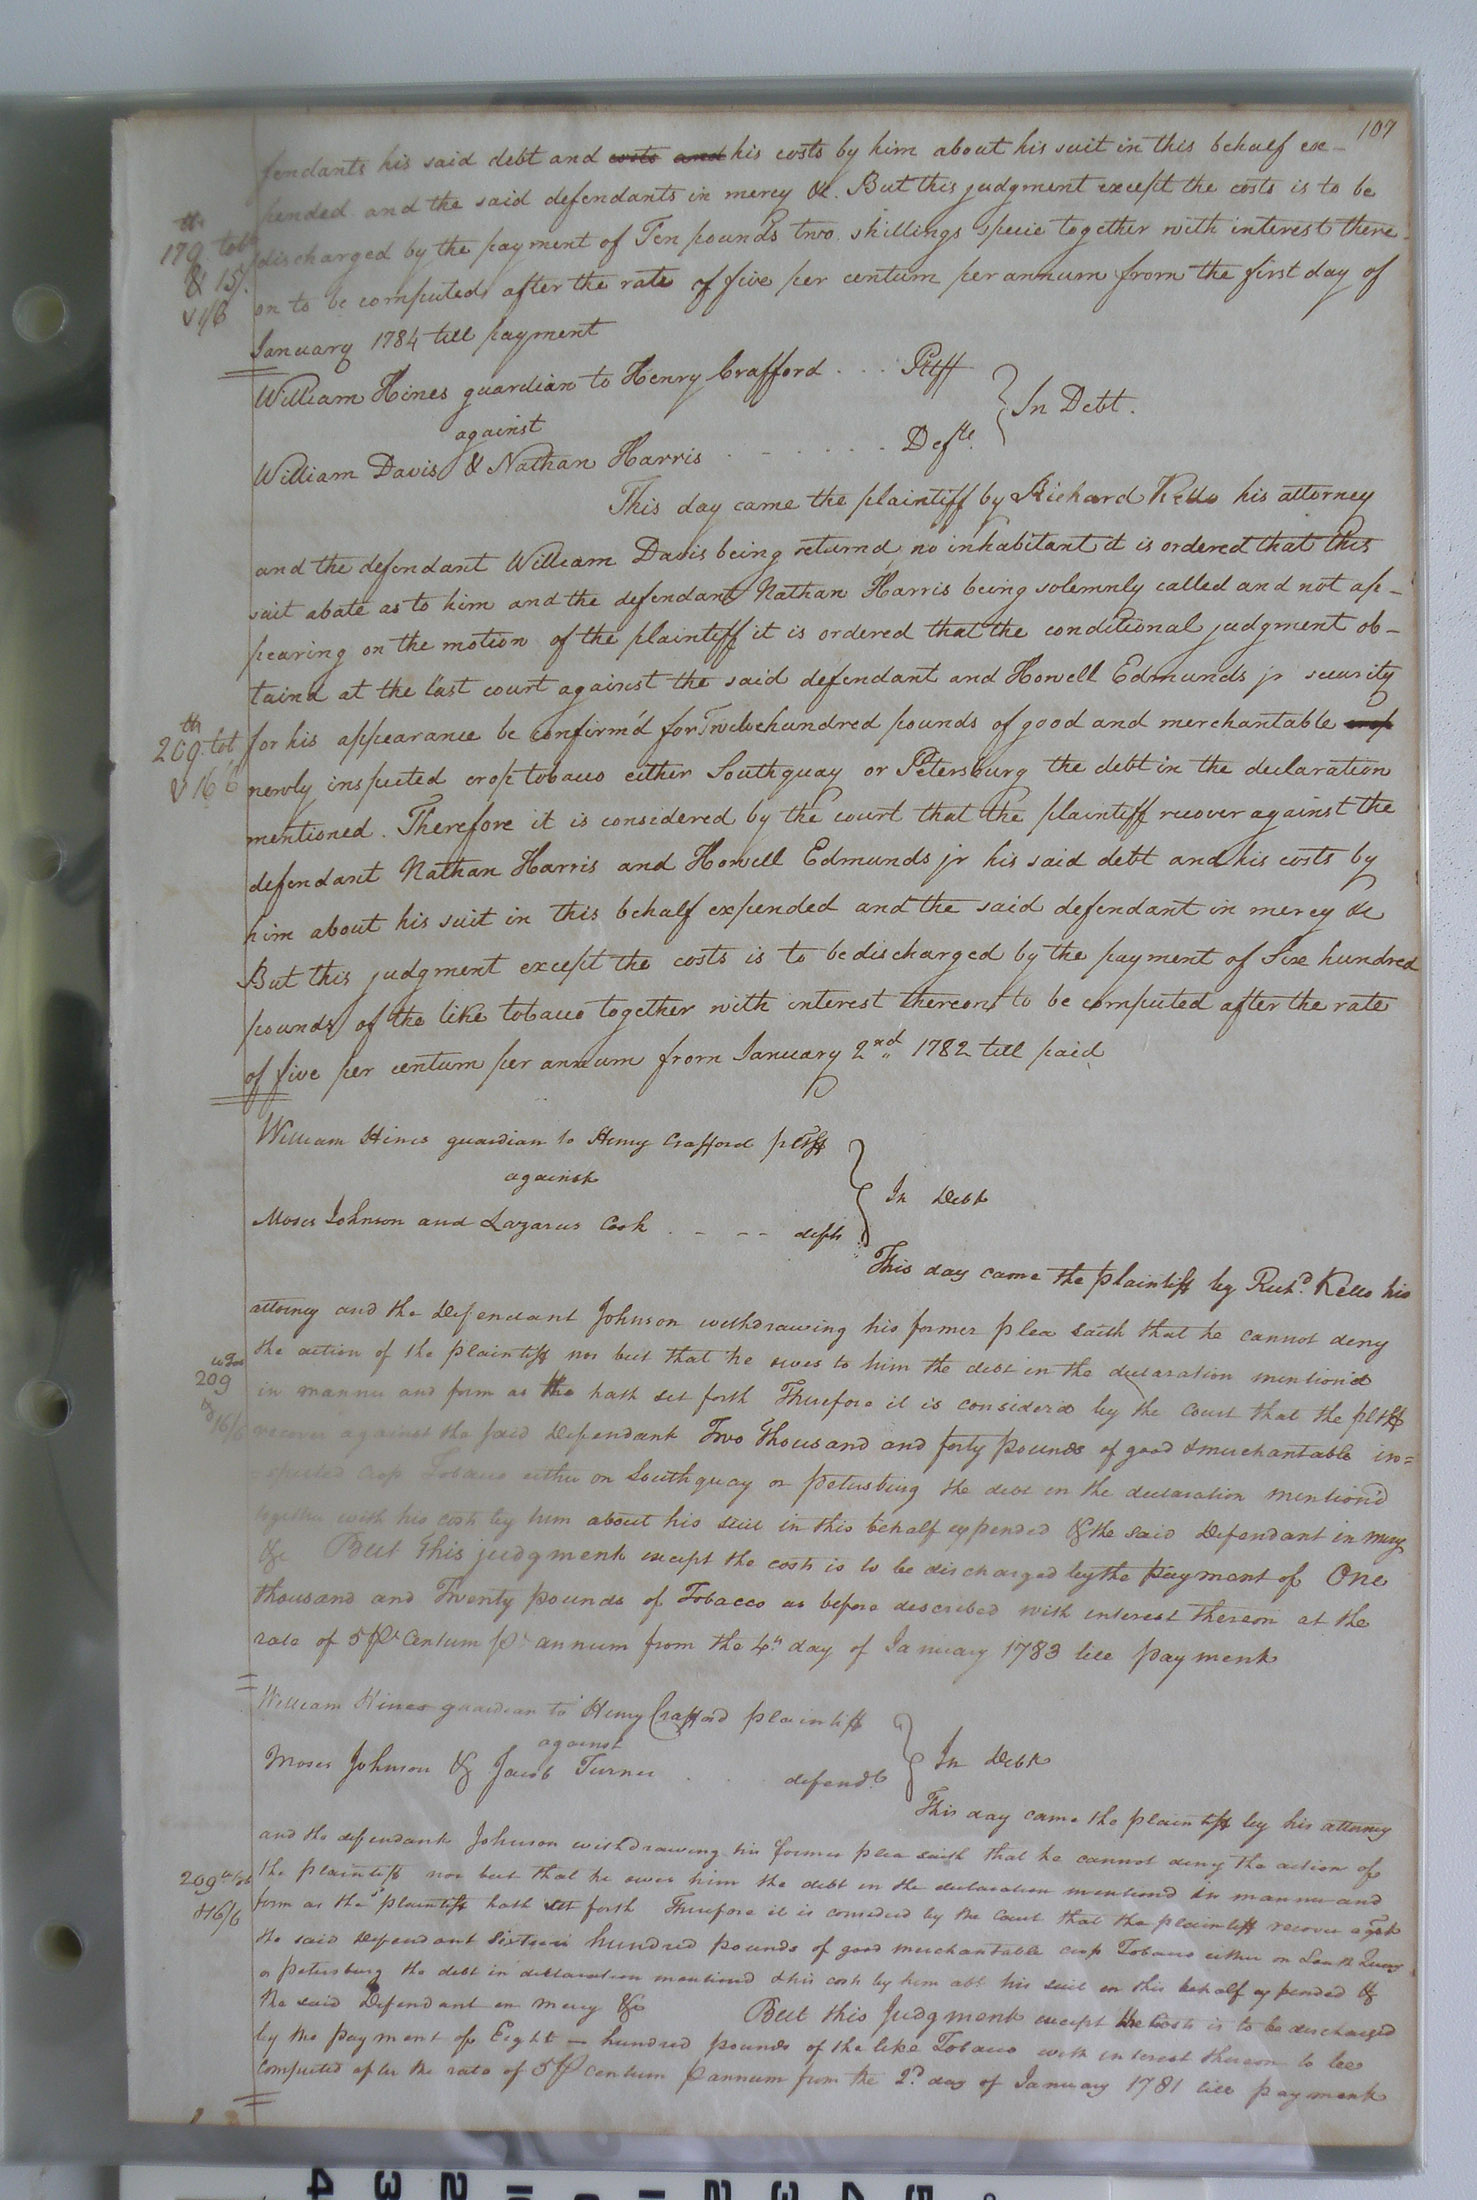 107
fendants his said debt and costs and his costs by him about his suit in this behalf ex-
pended and the said defendants in mercy &c. But this judgment except the costs is to be
discharged by the payment of Ten pounds two shillings specie together with interest there-
on to be computed after the rate of five per centum per annum from the first day of
January 1784 till payment
179 tob
& 15/.
William Hines guardian to Henry Crafford . . . Pltff
against
William Davis & Nathan Harris . - . . . . . Defts.
In Debt.
This day came the plaintiff by Richard Kello his attorney
and the defendant William Davis being returnd no inhabitant it is ordered that this
suit abate as to him and the defendant Nathan Harris being solemnly called and not ap-
pearing on the motion of the plaintiff it is ordered that the conditional judgment ob-
taind at the last court against the said defendant and Howell Edmunds jr security
for his appearance be confirm'd for Twelve hundred pounds of good and merchantable crop
newly inspected crop tobacco either Southquay or Petersburg the debt in the declaration
mentioned. Therefore it is considered by the court that the plaintiff recover against the
defendant Nathan Harris and Howell Edmunds jr his said debt and his costs by
him about his suit in this behalf expended and the said defendant in mercy &c
But this judgment except the costs is to be discharged by the payment of Six hundred
pounds of the like tobacco together with interest thereon to be computed after the rate
of five per centum per annum from January 2nd 1782 till paid
209 tob
& 16/6
William Hines guardian to Henry Crafford pltff
against
Moses Johnson and Lazarus Cook . - - - defts
In Debt
This day came the plaintiff by Richd Kello his
attorney and the Defendant Johnson withdrawing his former plea saith that he cannot deny
the action of the plaintiff nor but that he owes to him the debt in the declaration mention'd
in manner and form as the hath set forth Therefore it is consider'd by the Court that the pltff
recover against the said Defendant Two Thousand and forty pounds of good & merchantable in=
=spected crop Tobacco either on Southquay or petersburg the debt in the declaration mention'd
together with his costs by him about his suit in this behalf expended & the said Defendant in mercy
&c But this judgment except the costs is to be discharged by the payment of One
thousand and Twenty pounds of Tobacco as before described with interest thereon at the
rate of 5 Pr Centum Pr annum from the 4th day of January 1783 till payment
209
& 16/6
William Hines guardian to Henry Crafford plaintiff
against
Moses Johnson & Jacob Turner . . . defendts
In Debt
This day came the plaintiff by his attorney
and the defendant Johnson withdrawing his former plea saith that he cannot deny the action of
the plaintiff nor but that he owes him the debt in the declaration mentiond in manner and
form as the plaintiff hath set forth Therefore it is considerd by the Court that the plaintiff recover agst
the said Defendant Sixteen hundred pounds of good merchantable crop Tobacco either on South Quay
or petersburg the debt in declaration mentiond & his costs by him abt his suit in this behalf expended &
the said Defendant in mercy &c But this Judgment except the Costs is to be discharged
by the payment of Eight - hundred pounds of the like Tobacco with interest thereon to bee
Computed after the rate of 5 P Centum P annum from the 2d day of January 1781 till payment
209
& 16/6